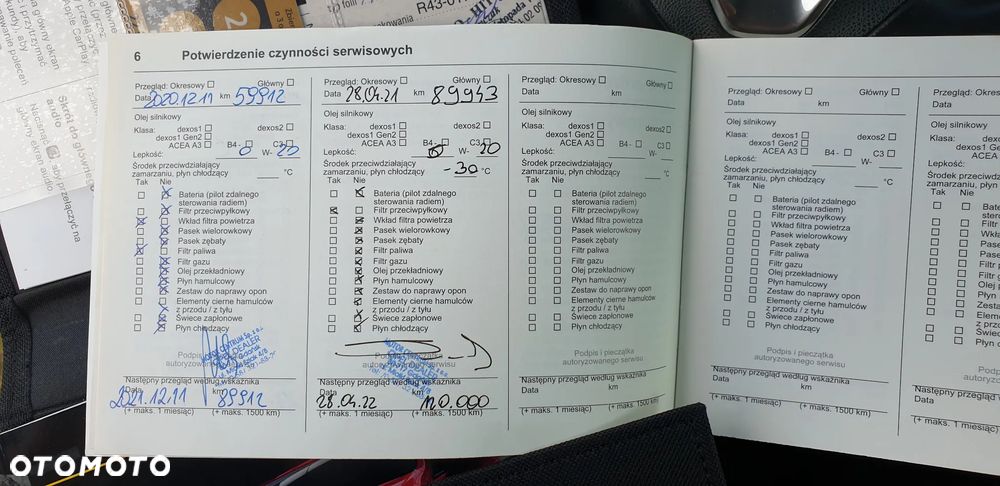 R43-01
6 Potwierdzenie czynności serwisowych
Przegląd: Okresowy Główny
Data 2020.12.11 km 59912
Olej silnikowy
Klasa: dexos1 dexos2
dexos1 Gen2
ACEA A3 B4 - C3
Lepkość: 0 W- 20
Środek przeciwdziałający
zamarzaniu, płyn chłodzący °C
Tak Nie
Bateria (pilot zdalnego
sterowania radiem)
Filtr przeciwpyłkowy
Wkład filtra powietrza
Pasek wielorowkowy
Pasek zębaty
Filtr paliwa
Filtr gazu
Olej przekładniowy
Płyn hamulcowy
Zestaw do naprawy opon
Elementy cierne hamulców
z przodu / z tyłu
Świece zapłonowe
Płyn chłodzący
Podpis i
autoryzowanego
Następny przegląd według wskaźnika
Data km
2021.12.11 89912
(+ maks. 1 miesiąc) (+ maks. 1500 km)
Przegląd: Okresowy Główny
Data 28.04.21 km 89943
Olej silnikowy
Klasa: dexos1 dexos2
dexos1 Gen2
ACEA A3 B4 - C3
Lepkość: 0 W- 20
Środek przeciwdziałający
zamarzaniu, płyn chłodzący -30 °C
Tak Nie
Bateria (pilot zdalnego
sterowania radiem)
Filtr przeciwpyłkowy
Wkład filtra powietrza
Pasek wielorowkowy
Pasek zębaty
Filtr paliwa
Filtr gazu
Olej przekładniowy
Płyn hamulcowy
Zestaw do naprawy opon
Elementy cierne hamulców
z przodu / z tyłu
Świece zapłonowe
Płyn chłodzący
autoryzowanego serwisu
Następny przegląd według wskaźnika
Data km
28.04.22 120.000
(+ maks. 1 miesiąc) (+ maks. 1500 km)
Przegląd: Okresowy Główny
Data km
Olej silnikowy
Klasa: dexos1 dexos2
dexos1 Gen2
ACEA A3 B4 - C3
Lepkość: W-
Środek przeciwdziałający
zamarzaniu, płyn chłodzący °C
Tak Nie
Bateria (pilot zdalnego
sterowania radiem)
Filtr przeciwpyłkowy
Wkład filtra powietrza
Pasek wielorowkowy
Pasek zębaty
Filtr paliwa
Filtr gazu
Olej przekładniowy
Płyn hamulcowy
Zestaw do naprawy opon
Elementy cierne hamulców
z przodu / z tyłu
Świece zapłonowe
Płyn chłodzący
Podpis i pieczątka
autoryzowanego serwisu
Następny przegląd według wskaźnika
Data km
(+ maks. 1 miesiąc) (+ maks. 1500 km)
Przegląd: Okresowy Główny
Data km
Olej silnikowy
Klasa: dexos1 dexos2
dexos1 Gen2
ACEA A3 B4 - C3
Lepkość: W-
Środek przeciwdziałający
zamarzaniu, płyn chłodzący °C
Tak Nie
Bateria (pilot zdalnego
sterowania radiem)
Filtr przeciwpyłkowy
Wkład filtra powietrza
Pasek wielorowkowy
Pasek zębaty
Filtr paliwa
Filtr gazu
Olej przekładniowy
Płyn hamulcowy
Zestaw do naprawy opon
Elementy cierne hamulców
z przodu / z tyłu
Świece zapłonowe
Płyn chłodzący
Podpis i pieczątka
autoryzowanego serwisu
Następny przegląd według wskaźnika
Data km
(+ maks. 1 miesiąc) (+ maks. 1500 km)
Przegląd: Okresowy
Data
Olej silnikowy
Klasa: dexos1
dexos1 Gen2
ACEA A3
Lepkość:
Środek przeciwdziałający
zamarzaniu, płyn
Tak Nie
Następny przegląd
Data
(+ maks. 1 miesiąc)
OTOMOTO